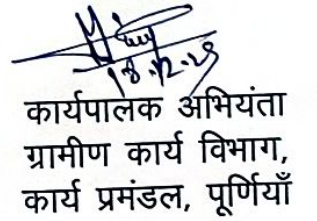 18.12.25
कार्यपालक अभियंता
ग्रामीण कार्य विभाग,
कार्य प्रमंडल, पूर्णियाँ